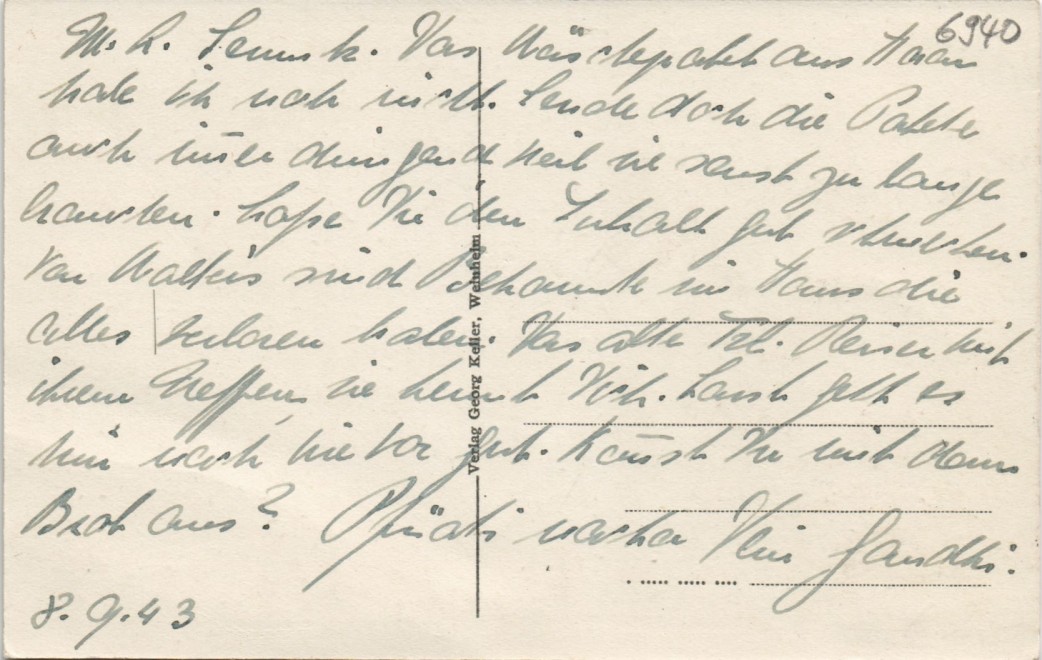 6940
M. L. Das Wäschepaket aus
habe ich noch nicht. Sende doch die Pakete
auch immer dringend weil sie sonst zu lange
brauchen. Lasse Dir den Inhalt gut schmecken.
Von sind Bekannte im Haus die
alles verloren haben. Das alte Frl. mit
ihrem Neffen, sie kennt Dich. Sonst geht es
mir noch wie vor gut. Kommst Du mit dem
Brot aus? Pfüati Dein Gandhi.
8.9.43
Verlag Georg Keller, Weinheim